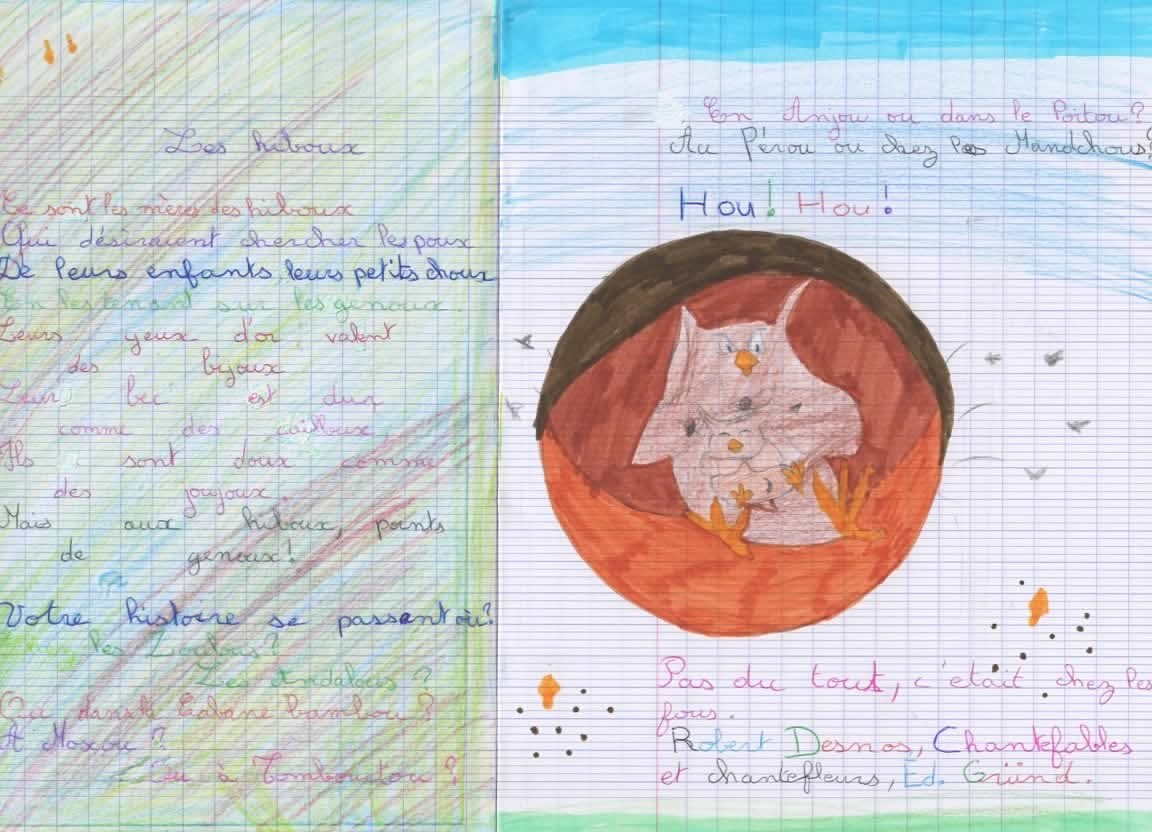 Les hiboux
Ce sont les mères des hiboux
Qui désiraient chercher les poux
De leurs enfants leurs petits choux
En les tenant sur les genoux.
Leurs yeux d'or valent
des bijoux
Leur bec est dur
comme des cailloux
Ils sont doux comme
des joujoux.
Mais aux hiboux, points
de genoux!
Votre histoire se passent où?
Chez les Zoulous?
Les Andalous?
Ou dans la Cabane bambou?
A Moscou?
Ou à Tombouctou?
En Anjou ou dans le Poitou?
Au Pérou ou chez les Mandchous?
Hou! Hou!
Pas du tout, c'était chez les
fous.
Robert Desnos, Chantefables
et chantefleurs, Ed. Gründ.